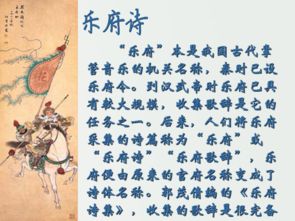 乐府诗
“乐府”本是我国古代掌
管音乐的机关名称，秦时已设
乐府令。到汉武帝时乐府已具
有较大规模，收集歌辞是它的
任务之一。后来，人们将乐府
采集的诗篇称为“乐府”或
“乐府诗”“乐府歌辞”，乐
府便由原来的官府名称变成了
诗体名称。郭茂倩编的《乐府
诗集》，收集的歌辞是很完备
花